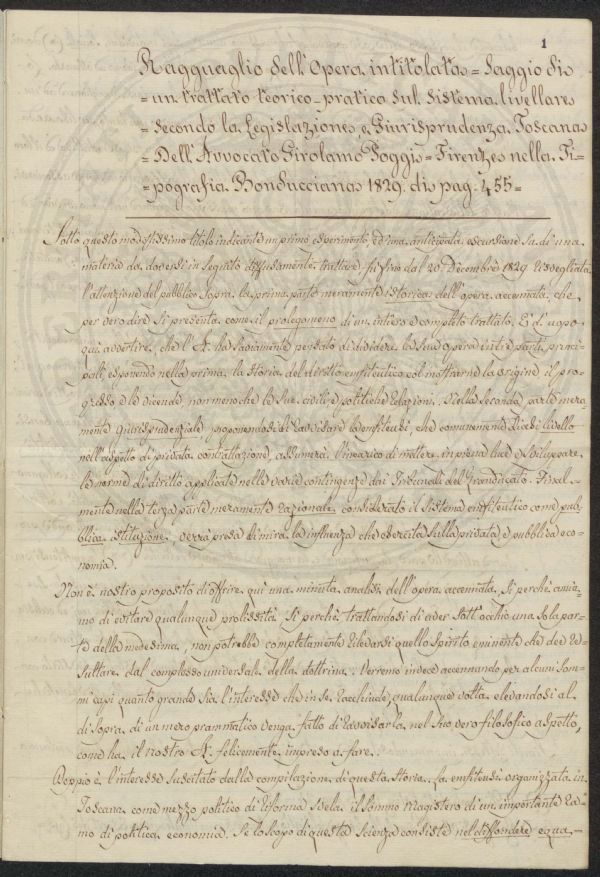 1
Ragguaglio dell'Opera intitolata = Saggio di
= un trattato teorico-pratico sul sistema livellare
= secondo la Legislazione e Giurisprudenza Toscana
= Dell'Avvocato Girolamo Poggi = Firenze nella Ti=
= pografia Bonducciana 1829. di pag. 455 =
Sotto questo modestissimo titolo indicante un primo esperimento, ed una anticipata escursione su di una
materia da doversi in seguito diffusamente trattare fu fino dal 20. Decembre 1829 risvegliata
l'attenzione del pubblico sopra la prima parte meramente istorica dell'opera accennata, che
per vero dire si presenta come il prolegomeno di un intiero e completo trattato. È d'uopo
qui avvertire, che l'A. ha saviamente pensato di dividere la sua opera in tre parti princi-
pali, esponendo nella prima la storia del diritto enfiteutico col mostrarne la origine il pro-
gresso e le vicende, non meno che le sue civili e politiche relazioni. Nella seconda parte mera-
mente giurisprudenziale proponendosi di ravvisare la enfiteusi, che comunemente dicesi livello
nell'aspetto di privata contrattazione, assumerà l'incarico di mettere in piena luce e sviluppare
le norme di diritto applicate nelle varie contingenze dai Tribunali del Granducato. Final-
mente nella terza parte meramente razionale, considerato il sistema enfiteutico come pub-
blica istituzione, verrà presa di mira la influenza che esercita sulla privata e pubblica eco-
nomia.
Non è nostro proposito di offrire qui una minuta analisi dell'opera accennata, sì perchè amia-
mo di evitare qualunque prolissità, sì perchè trattandosi di aver sott'occhio una sola par-
te della medesima, non potrebbe completamente rilevarsi quello spirito eminente che dee re-
sultare dal complesso universale della dottrina. Verremo invece accennando per alcuni som-
mi capi quanto grande sia l'interesse che in se racchiude, qualunque volta elevandosi al
di sopra di un mero prammatico venga fatto di ravvisarla nel suo vero filosofico aspetto,
come ha il nostro A. felicemente impreso a fare.
Doppio è l'interesse suscitato dalla compilazione di questa storia. La enfiteusi organizzata in
Toscana come mezzo politico di riforma svela il sommo magistero di un importante ra-
mo di politica economia. Se lo scopo di questa scienza consiste nel diffondere equa-